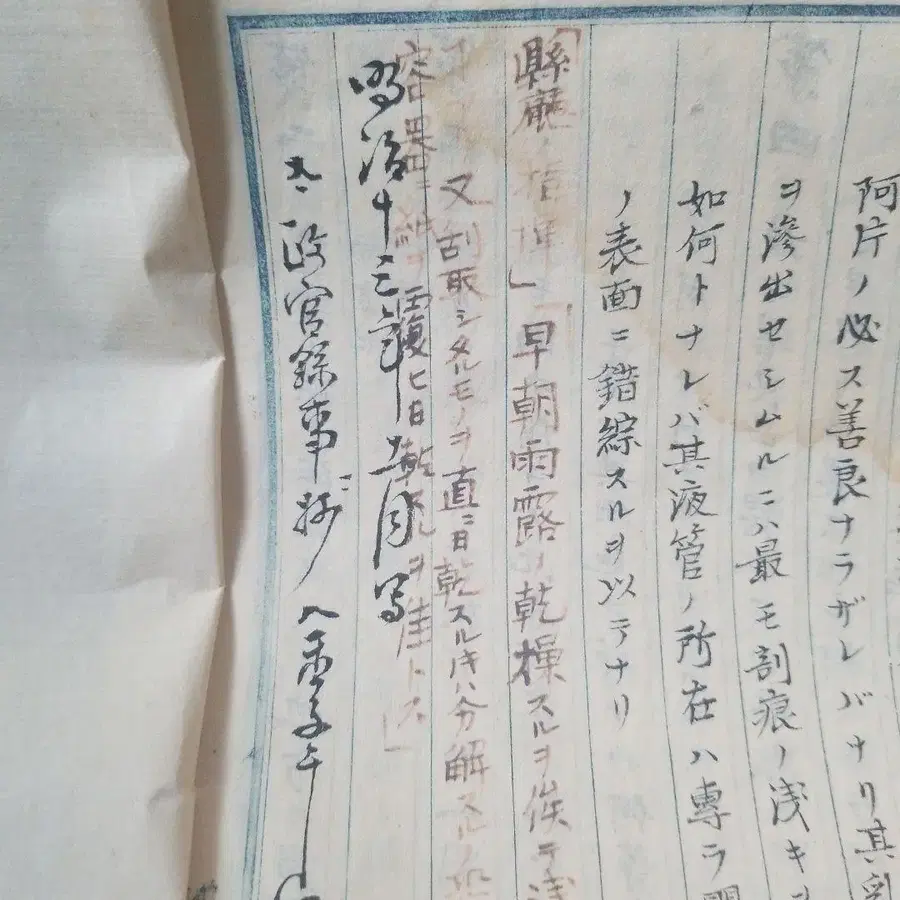 阿片ノ必ス善良ナラザレバナリ其乳
ヲ滲出セシムルニハ最モ割痕ノ浅キヲ
如何トナレバ其液管ノ所在ハ專ラ
ノ表面ニ錯綜スルヲ以テナリ
「縣廳ノ指揮」「早朝雨露ノ乾操スルヲ俟テ浅
又刮取シタルモノヲ直ニ日乾スル時ハ分解スルノ
容器ニ納メ覆ヒ日乾
ヲ佳トス」
明治十三年十二月写
太政官